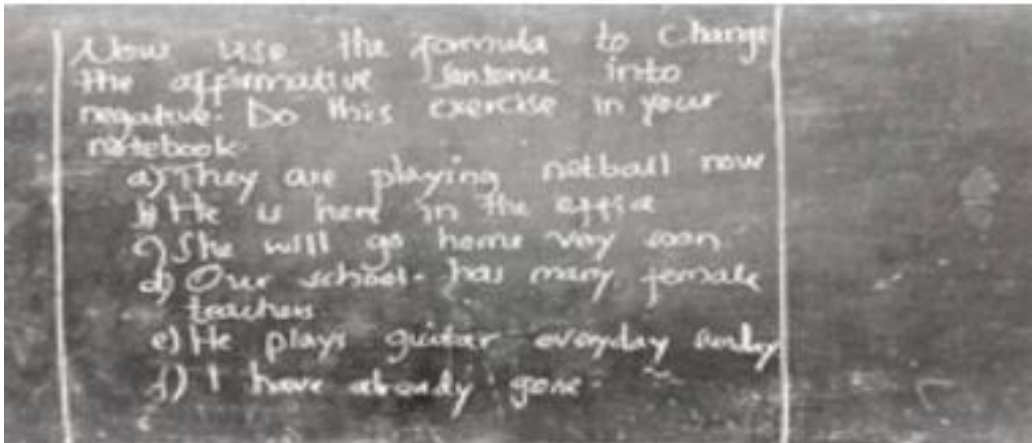 Now use the formula to change
the affirmative sentence into
negative. Do this exercise in your
notebook.
a) They are playing netball now
b) He is here in the office
c) She will go home very soon.
d) Our school has many female
teachers.
e) He plays guitar everyday
f) I have already gone.